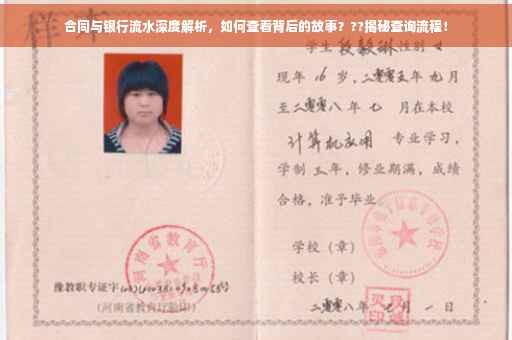 合同与银行流水深度解析，如何查看背后的故事？??揭秘查询流程！
样本
学生段毅琳性别女
现年16岁，二零零五年九月
至二零零八年七月在本校
计算机应用 专业学习，
学制三年，修业期满，成绩
合格，准予毕业。
学校（章）
校长（章）
二零零八年七月一日
河南省教育厅
豫教职专证字
（河南省教育厅验印）